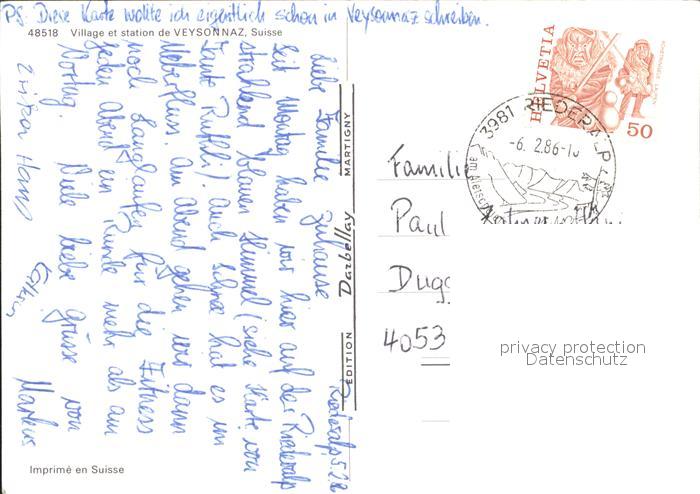 PS. Diese Karte wollte ich eigentlich schon in Veysonnaz schreiben.
48518 Village et station de VEYSONNAZ, Suisse
Riederalp 5.2.86
Liebe Familie Zuhause
Seit Montag haben wir hier auf der Riederalp
strahlend blauen Himmel (siehe Karte von
Tante Ruthli). Auch Schnee hat es im
Ueberfluss. Am Abend gehen wir dann
noch Langlaufen für die Fitness
jeden Abend ein Runde mehr als am
Vortag. Viele liebe Grüsse von
Hans
Markus
Imprimé en Suisse
EDITION Darbellay MARTIGNY
HELVETIA
50
3981 RIEDERALP
-6. 2.86-10
am Aletsch
Famili
Paul
Dugg
4053
privacy protection
Datenschutz